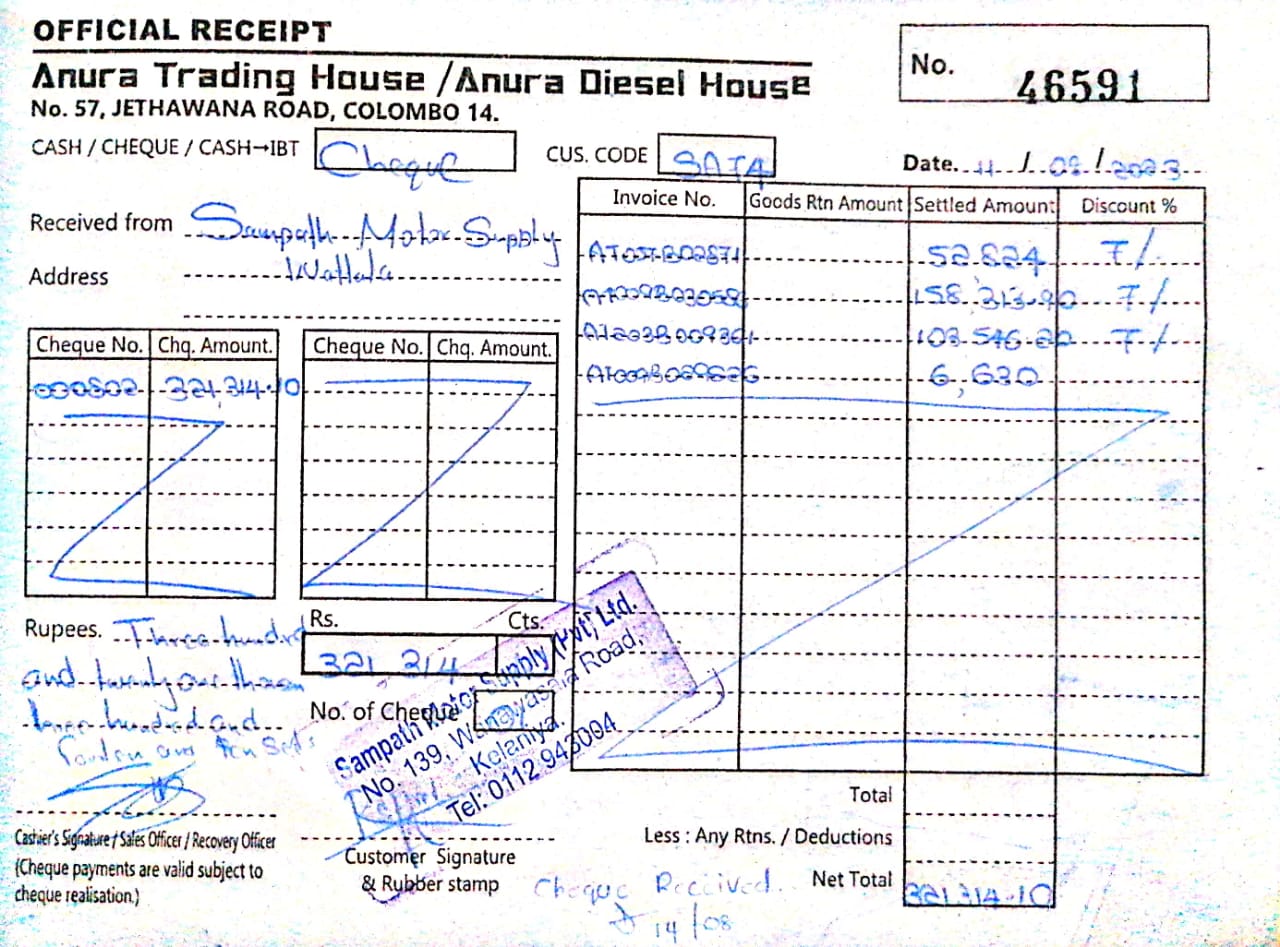 OFFICIAL RECEIPT
Anura Trading House /Anura Diesel House
No. 57, JETHAWANA ROAD, COLOMBO 14.
No. 46591
CASH / CHEQUE / CASH→IBT Cheque
CUS. CODE SAT4
Date. 11 / 08 / 2023
Received from Sampath Motor Supply
Address Wattala
Cheque No. Chq. Amount.
000802 321,314.10
Cheque No. Chq. Amount.
Invoice No. Goods Rtn Amount Settled Amount Discount %
52,824 7/.
158,313.90 7/.
103.546.20 7/.
6,630
Rupees. Three hundred
and twenty one thousan
three hundred and
Rs. Cts.
321 314
No. of Cheque
Sampath Motor Supply (Pvt) Ltd.
No. 139, Wanawasala Road,
Kelaniya.
Tel: 0112 943004
Cashier's Signature / Sales Officer / Recovery Officer
(Cheque payments are valid subject to
cheque realisation.)
Customer Signature
& Rubber stamp
Total
Less : Any Rtns. / Deductions
Net Total 321314.10
Cheque Received.
14/08